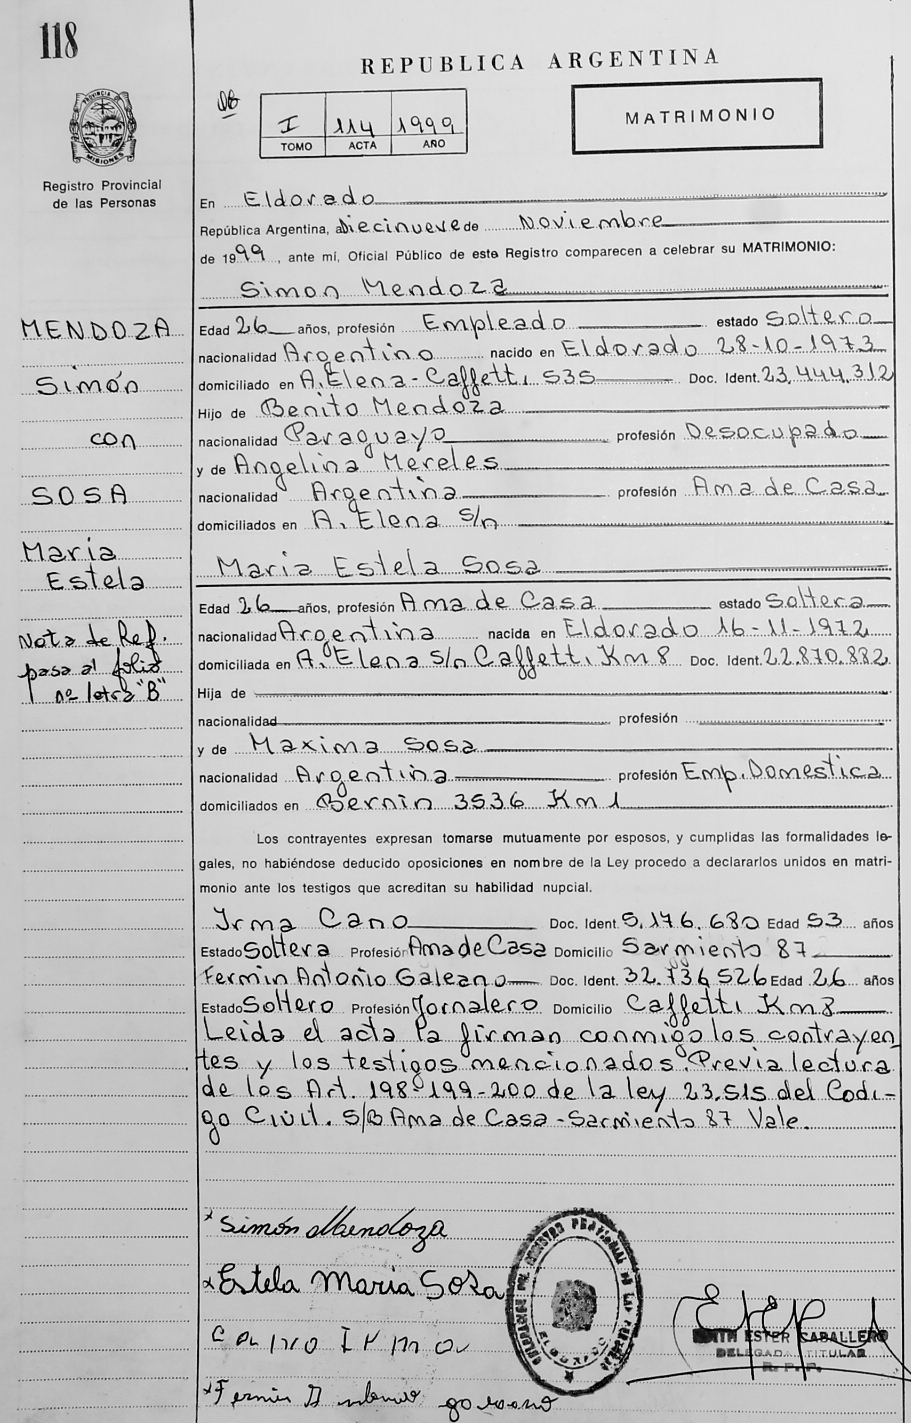 118
REPUBLICA ARGENTINA
PROVINCIA DE MISIONES
Registro Provincial
de las Personas
I 114 1999
TOMO ACTA AÑO
MATRIMONIO
En Eldorado
República Argentina, a Diecinueve de Noviembre
de 1999, ante mí, Oficial Público de este Registro comparecen a celebrar su MATRIMONIO:
Simon Mendoza
MENDOZA
Simón
con
SOSA
Maria
Estela
Nota de Ref.
pasa al folio
nº letra "B"
Edad 26 años, profesión Empleado estado Soltero
nacionalidad Argentino nacido en Eldorado 28-10-1973
domiciliado en A. Elena - Caffetti 535 Doc. Ident. 23.444.312
Hijo de Benito Mendoza
nacionalidad Paraguayo profesión Desocupado
y de Angelina Mereles
nacionalidad Argentina profesión Ama de Casa
domiciliados en A. Elena s/n
Maria Estela Sosa
Edad 26 años, profesión Ama de Casa estado Soltera
nacionalidad Argentina nacida en Eldorado 16-11-1972
domiciliada en A. Elena s/n Caffetti Km 8 Doc. Ident. 22.870.882
Hija de
nacionalidad profesión
y de Maxima Sosa
nacionalidad Argentina profesión Emp. Domestica
domiciliados en Bernin 3536 Km 1
Los contrayentes expresan tomarse mutuamente por esposos, y cumplidas las formalidades le-
gales, no habiéndose deducido oposiciones en nombre de la Ley procedo a declararlos unidos en matri-
monio ante los testigos que acreditan su habilidad nupcial.
Irma Cano Doc. Ident. 5.176.680 Edad 53 años
Estado Soltera Profesión Ama de Casa Domicilio Sarmiento 87
Fermin Antonio Galeano Doc. Ident. 32.736.526 Edad 26 años
Estado Soltero Profesión Jornalero Domicilio Caffetti Km 8
Leida el acta la firman conmigo los contrayen
tes y los testigos mencionados. Previa lectura
de los Art. 198-199-200 de la ley 23.515 del Codi-
go Civil. S/B Ama de Casa - Sarmiento 87 Vale.
x Simón Mendoza
x Estela Maria Sosa
Cano Irma
x Fermin
EDITH ESTER CABALLERO
DELEGADA TITULAR
R. P. P.
ELDORADO